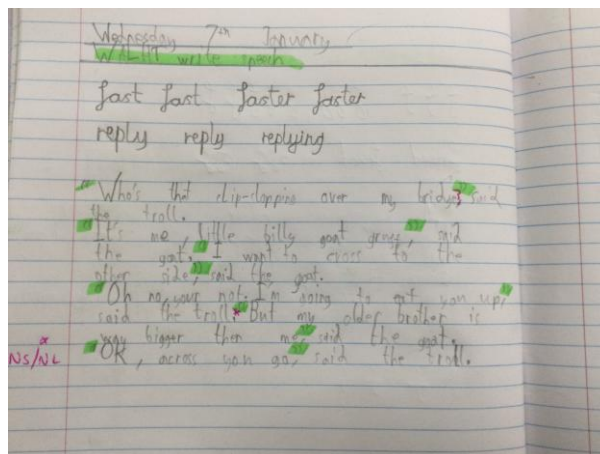 Wednesday 7th January
WALHT write speech
fast fast faster faster
reply reply replying
"Who's that clip-clopping over my bridge" said
the troll.
"It's me, little billy goat gruff," said
the goat. "I want to cross to the
other side," said the goat.
"Oh no, your not. I'm going to eat you up,"
said the troll. "But my older brother is
way bigger then me," said the goat.
NS/NL "OK, across you go," said the troll.